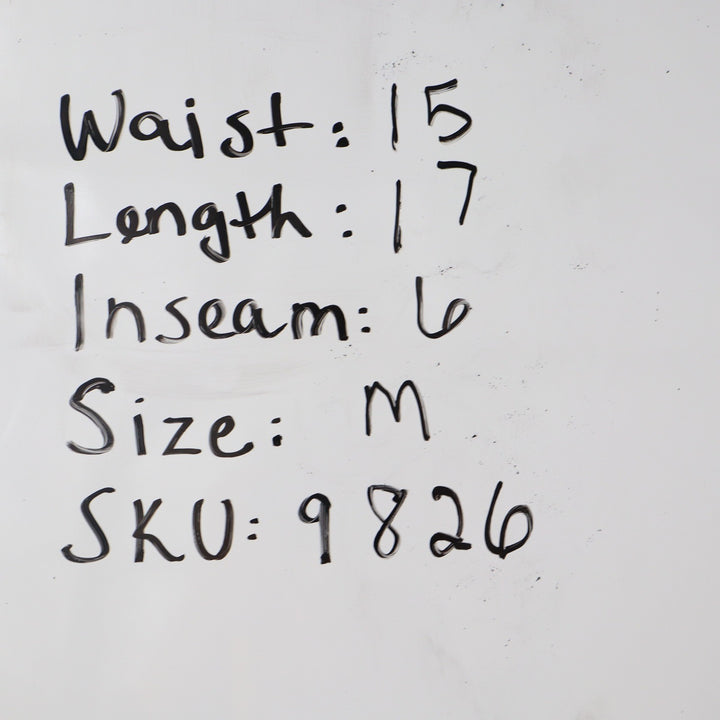 Waist: 15
Length: 17
Inseam: 6
Size: M
SKU: 9826